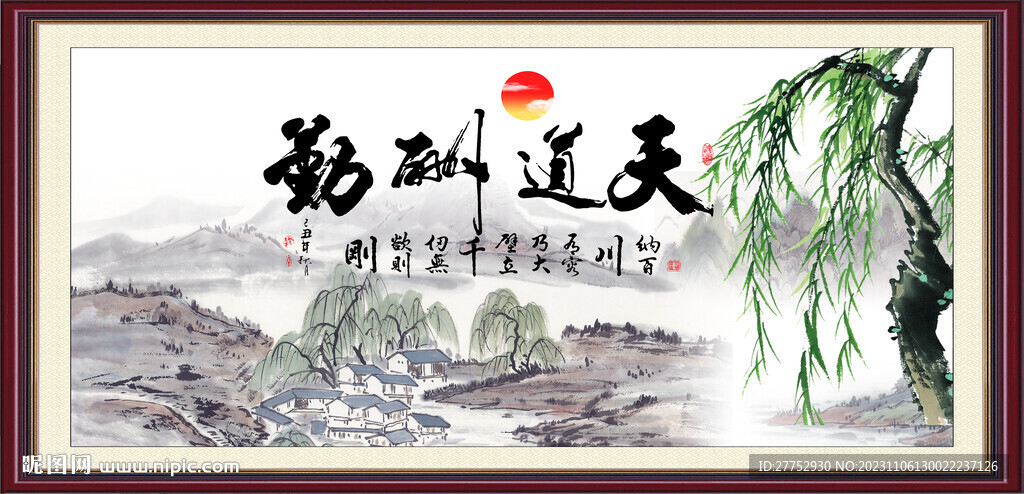 天道酬勤
納百川有容乃大壁立千仞無欲則剛
己丑年秋月
昵图网 www.nipic.com
ID:27752930 NO:20231106130022237126